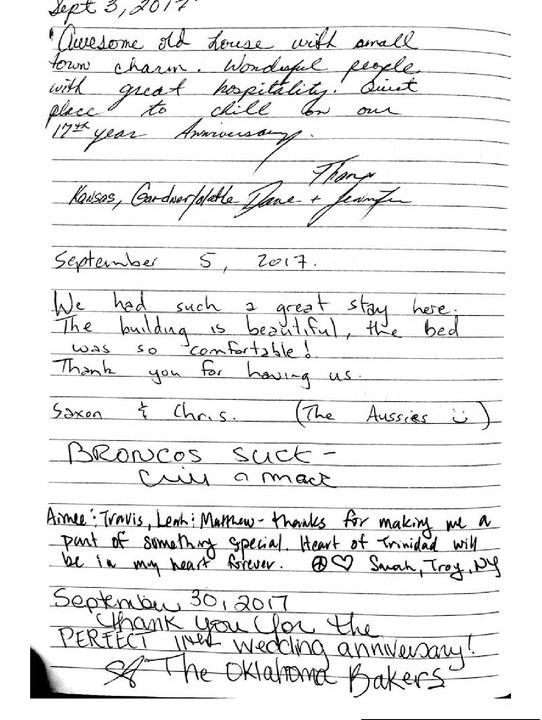 Sept 3, 2017
"Awesome old house with small
town charm. Wonderful people
with great hospitality. Quiet
place to chill on our
17th year Anniversary.
Thanx
Kansas, Gardner/Olathe Dane + Jennifer
September 5, 2017.
We had such a great stay here.
The building is beautiful, the bed
was so comfortable!
Thank you for having us.
Saxon & Chris. (The Aussies ☺)
BRONCOS SUCK -
a mack
Aimee & Travis, Leah & Matthew - thanks for making me a
part of something special. Heart of Trinidad will
be in my heart forever. ☮♡ Sarah, Troy, NY
September 30, 2017
Thank you for the
PERFECT wedding anniversary!
The Oklahoma Bakers